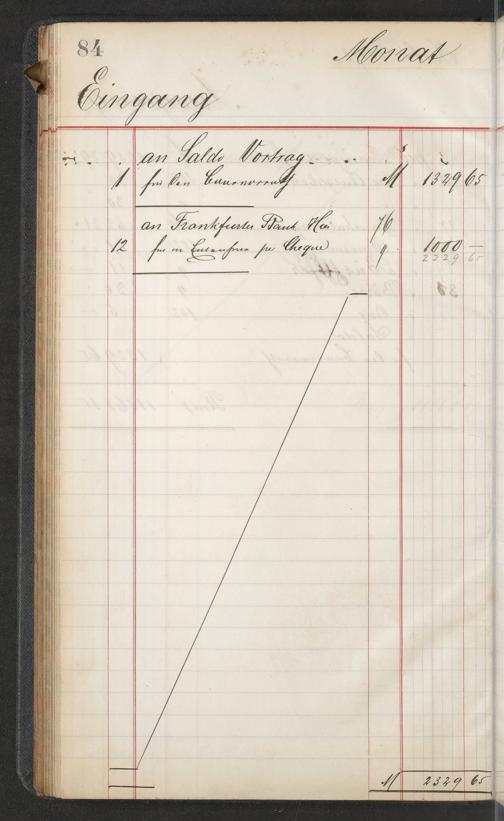 84
Monat
Eingang
an Saldo Vortrag
1 für den Cassavorrath M 1329 65
an Frankfurter Bank 76
12 per Cheque 9 1000 —
2329 65
M 2329 65